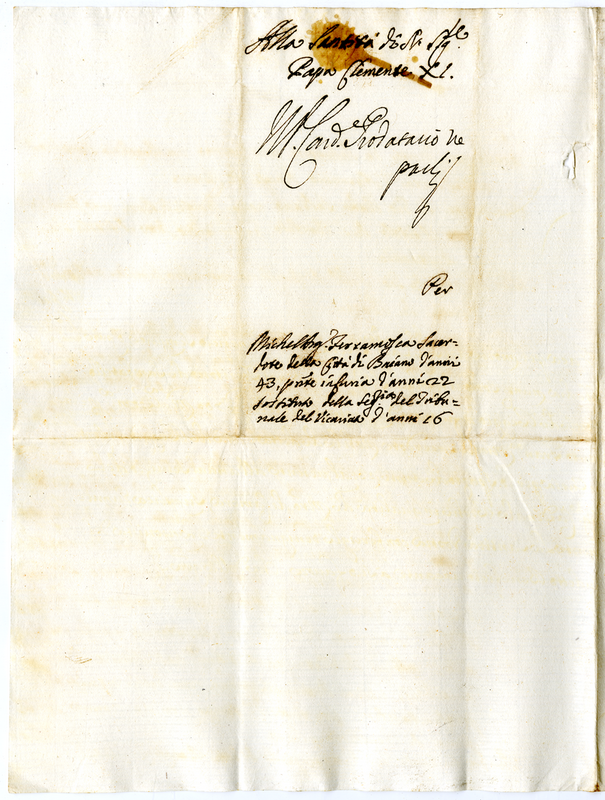 Alla Santità di N. Sig.re
Papa Clemente XI.
M. Card.e Prodatario ne
parli
Per
Michel Ang.o Ferramosca Sacer=
dote della Città di d'anni
43, in d'anni 22
sostituto della Seg.ria del Tribu=
nale del Vicariato d'anni 16